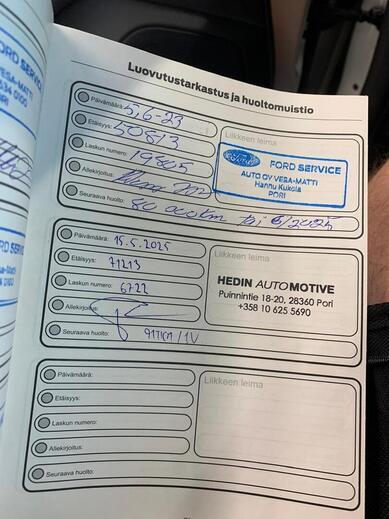 FORD SERVICE
VESA-MATTI
PORI
Luovutustarkastus ja huoltomuistio
Päivämäärä: 5,6-23
Etäisyys: 50813
Laskun numero: 19805
Allekirjoitus:
Seuraava huolto: 80 000km tai 6/2025
Liikkeen leima
Ford
FORD SERVICE
AUTO OY VESA-MATTI
Hannu Kukola
PORI
Päivämäärä: 15.5.2025
Etäisyys: 71213
Laskun numero: 6722
Allekirjoitus:
Seuraava huolto: 91TKM/1V
Liikkeen leima
HEDIN AUTOMOTIVE
Puinnintie 18-20, 28360 Pori
+358 10 625 5690
Päivämäärä:
Etäisyys:
Laskun numero:
Allekirjoitus:
Seuraava huolto:
Liikkeen leima